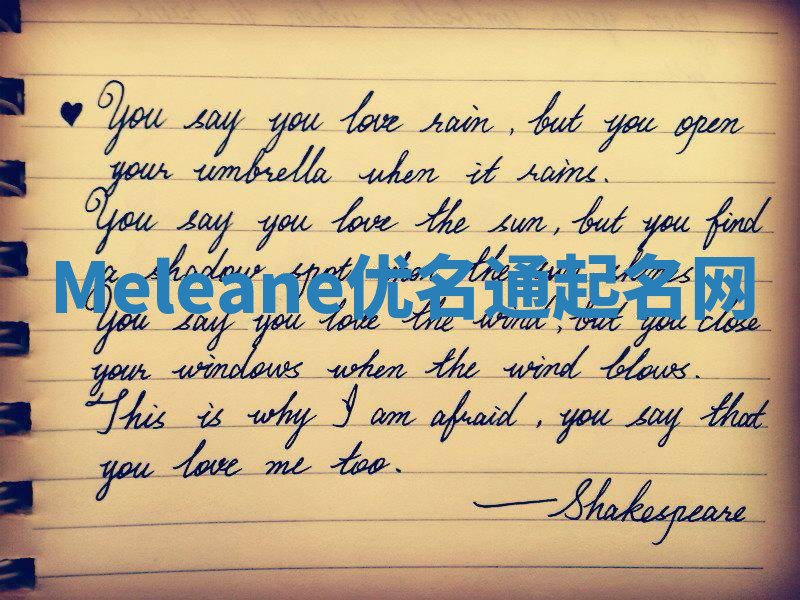 ♥ You say you love rain, but you open
your umbrella when it rains.
You say you love the sun, but you find
a shadow spot when the sun shines
Meleane优名通起名网
You say you love the wind, but you close
your windows when the wind blows.
This is why I am afraid, you say that
you love me too.
—Shakespeare